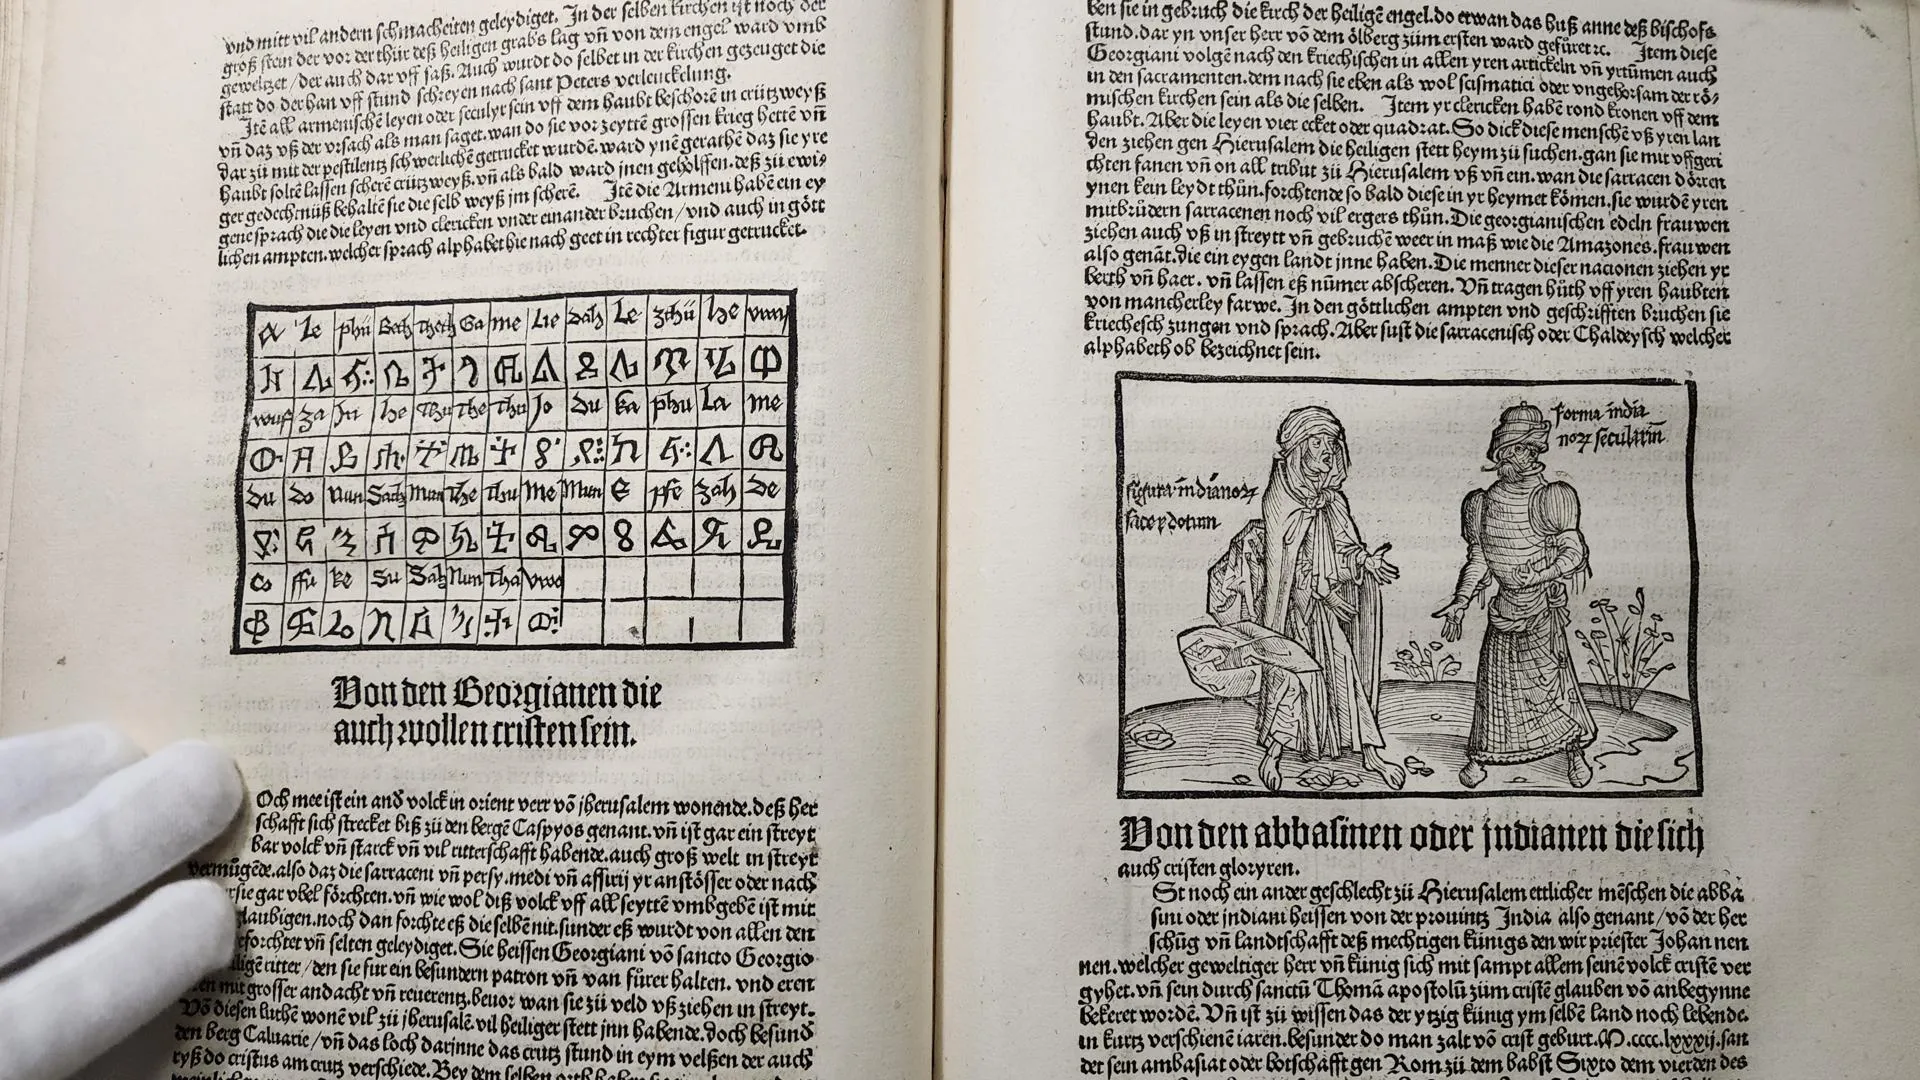 vnd mitt vil andern schmacheiten geleydiget. In der selben kirchen ist noch der
groß stein der vor der thür deß heiligen grabs lag vñ von dem engel ward vmb
geweltzet / der auch dar vff saß. Auch wurdt do selbet in der kirchen gezeuget die
statt do der han vff stund schreyen nach sant Peters verleuckelung.
Itē all armenischē leyen oder seculyr sein vff dem haubt beschorē in crütz weyß
vñ daz vß der vrsach als man saget. wan do sie vor zeyttē grossen krieg hettē vñ
dar zü mit der pestilentz schwerlichē getrucket wurdē. ward ynē gerathē daz sie yre
haubt soltē lassen scherē crütz weyß. vñ als bald ward jnen geholffen. deß zü ewi⸗
ger gedechtnüß behaltē sie die selb weyß jm scherē. Itē die Armeni habē ein ey
gene sprach die die leyen vnd clericken vnder einander bruchen / vnd auch in gött
lichen ampten. welcher sprach alphabet hie nach geet in rechter figur getrucket.
a le phü Beth Theth Ga me Lie dah Le zthü he
za Jn he The Thu Jo du ka phu La me
du do Nun Sach Mun The Thu Me Mun E pfe zah de
co ffu ke Su Sah Nun Tha Vwo
Von den Georgianen die
auch wollen cristen sein.
Och mee ist ein and̄ volck in orient verr vō jherusalem wonende. deß her
schafft sich strecket biß zü den bergē Caspyos genant. vñ ist gar ein streyt
bar volck vñ starck vñ vil ritterschafft habende. auch groß welt in streyt
vermügēde. also daz die sarraceni vñ persy. medi vñ assirij yr anstösser oder nach
sie gar vbel förchten. vñ wie wol diß volck vff all seyttē vmbgebē ist mit
glaubigen. noch dan forchte eß die selbē nit. sunder eß wurdt von allen den
geforchtet vñ selten geleydiget. Sie heissen Georgiani vō sancto Georgio
ritter / den sie fur ein besundern patron vñ van fürer halten. vnd eren
mit grosser andacht vñ reuerentz. beuor wan sie zü veld vß ziehen in streyt.
Vō diesen luthē wonē vil zü jherusalē. vil heiliger stett jnn habende. doch besund̄
den berg Caluarie / vñ das loch darjnne das crutz stund in eym velßen der auch
ryß do cristus am crutz verschiede. Bey dem selben orth haben
ben sie in gebruch die kirch der heiligē engel. do etwan das huß anne deß bischofs
stund. dar yn vnser herr vō dem ölberg züm ersten ward gefüret ⁊c. Item diese
Georgiani volgē nach den kriechischen in allen yren artickeln vñ yrtümen auch
in den sacramenten. dem nach sie eben als wol scismatici oder vngehorsam der rö⸗
mischen kirchen sein als die selben. Item yr clericken habē rond kronen vff dem
haubt. Aber die leyen vier ecket oder quadrat. So dick diese menschē vß yren lan
den ziehen gen Hierusalem die heiligen stett heym zü suchen. gan sie mit vffgeri
chten fanen vñ on all tribut zü Hierusalem vß vñ ein. wan die sarracen dörren
ynen kein leydt thün. forchtende so bald diese in yr heymet kömen. sie wurdē yren
mitbrüdern sarracenen noch vil ergers thün. Die georgianischen edeln frauwen
ziehen auch vß in streytt vñ gebruchē weer in maß wie die Amazones. frauwen
also genāt. die ein eygen landt jnne haben. Die menner dieser nacionen ziehen yr
berth vñ haer. vñ lassen eß nümer abscheren. Vñ tragen hüth vff yren haubten
von mancherley farwe. In den göttlichen ampten vnd geschrifften bruchen sie
kriechesch zungen vnd sprach. Aber sust die sarracenisch oder Chaldeysch welcher
alphabeth ob bezeichnet sein.
forma india
noꝝ seculariū
figura indianoꝝ
sacerdotum
Von den abbasinen oder jndianen die sich
auch cristen gloryren.
St noch ein ander geschlecht zü Hierusalem ettlicher mēschen die abba
sini oder jndiani heissen von der prouintz India also genant / vō der her
schüg vñ landtschafft deß mechtigen künigs den wir priester Johan nen
nen. welcher geweltiger herr vñ künig sich mit sampt allem seinē volck cristē ver
gyhet. vñ sein durch sanctū Thomā apostolū züm cristē glauben vō anbegynne
bekeret wordē. Vñ ist zü wissen das der ytzig künig ym selbē land noch lebende.
in kurtz verschienē iaren. besunder do man zalt vō crist geburt. M.cccc.lxxxij. san
det sein ambasiat oder botschafft gen Rom zü dem babst Sixto dem vierden des